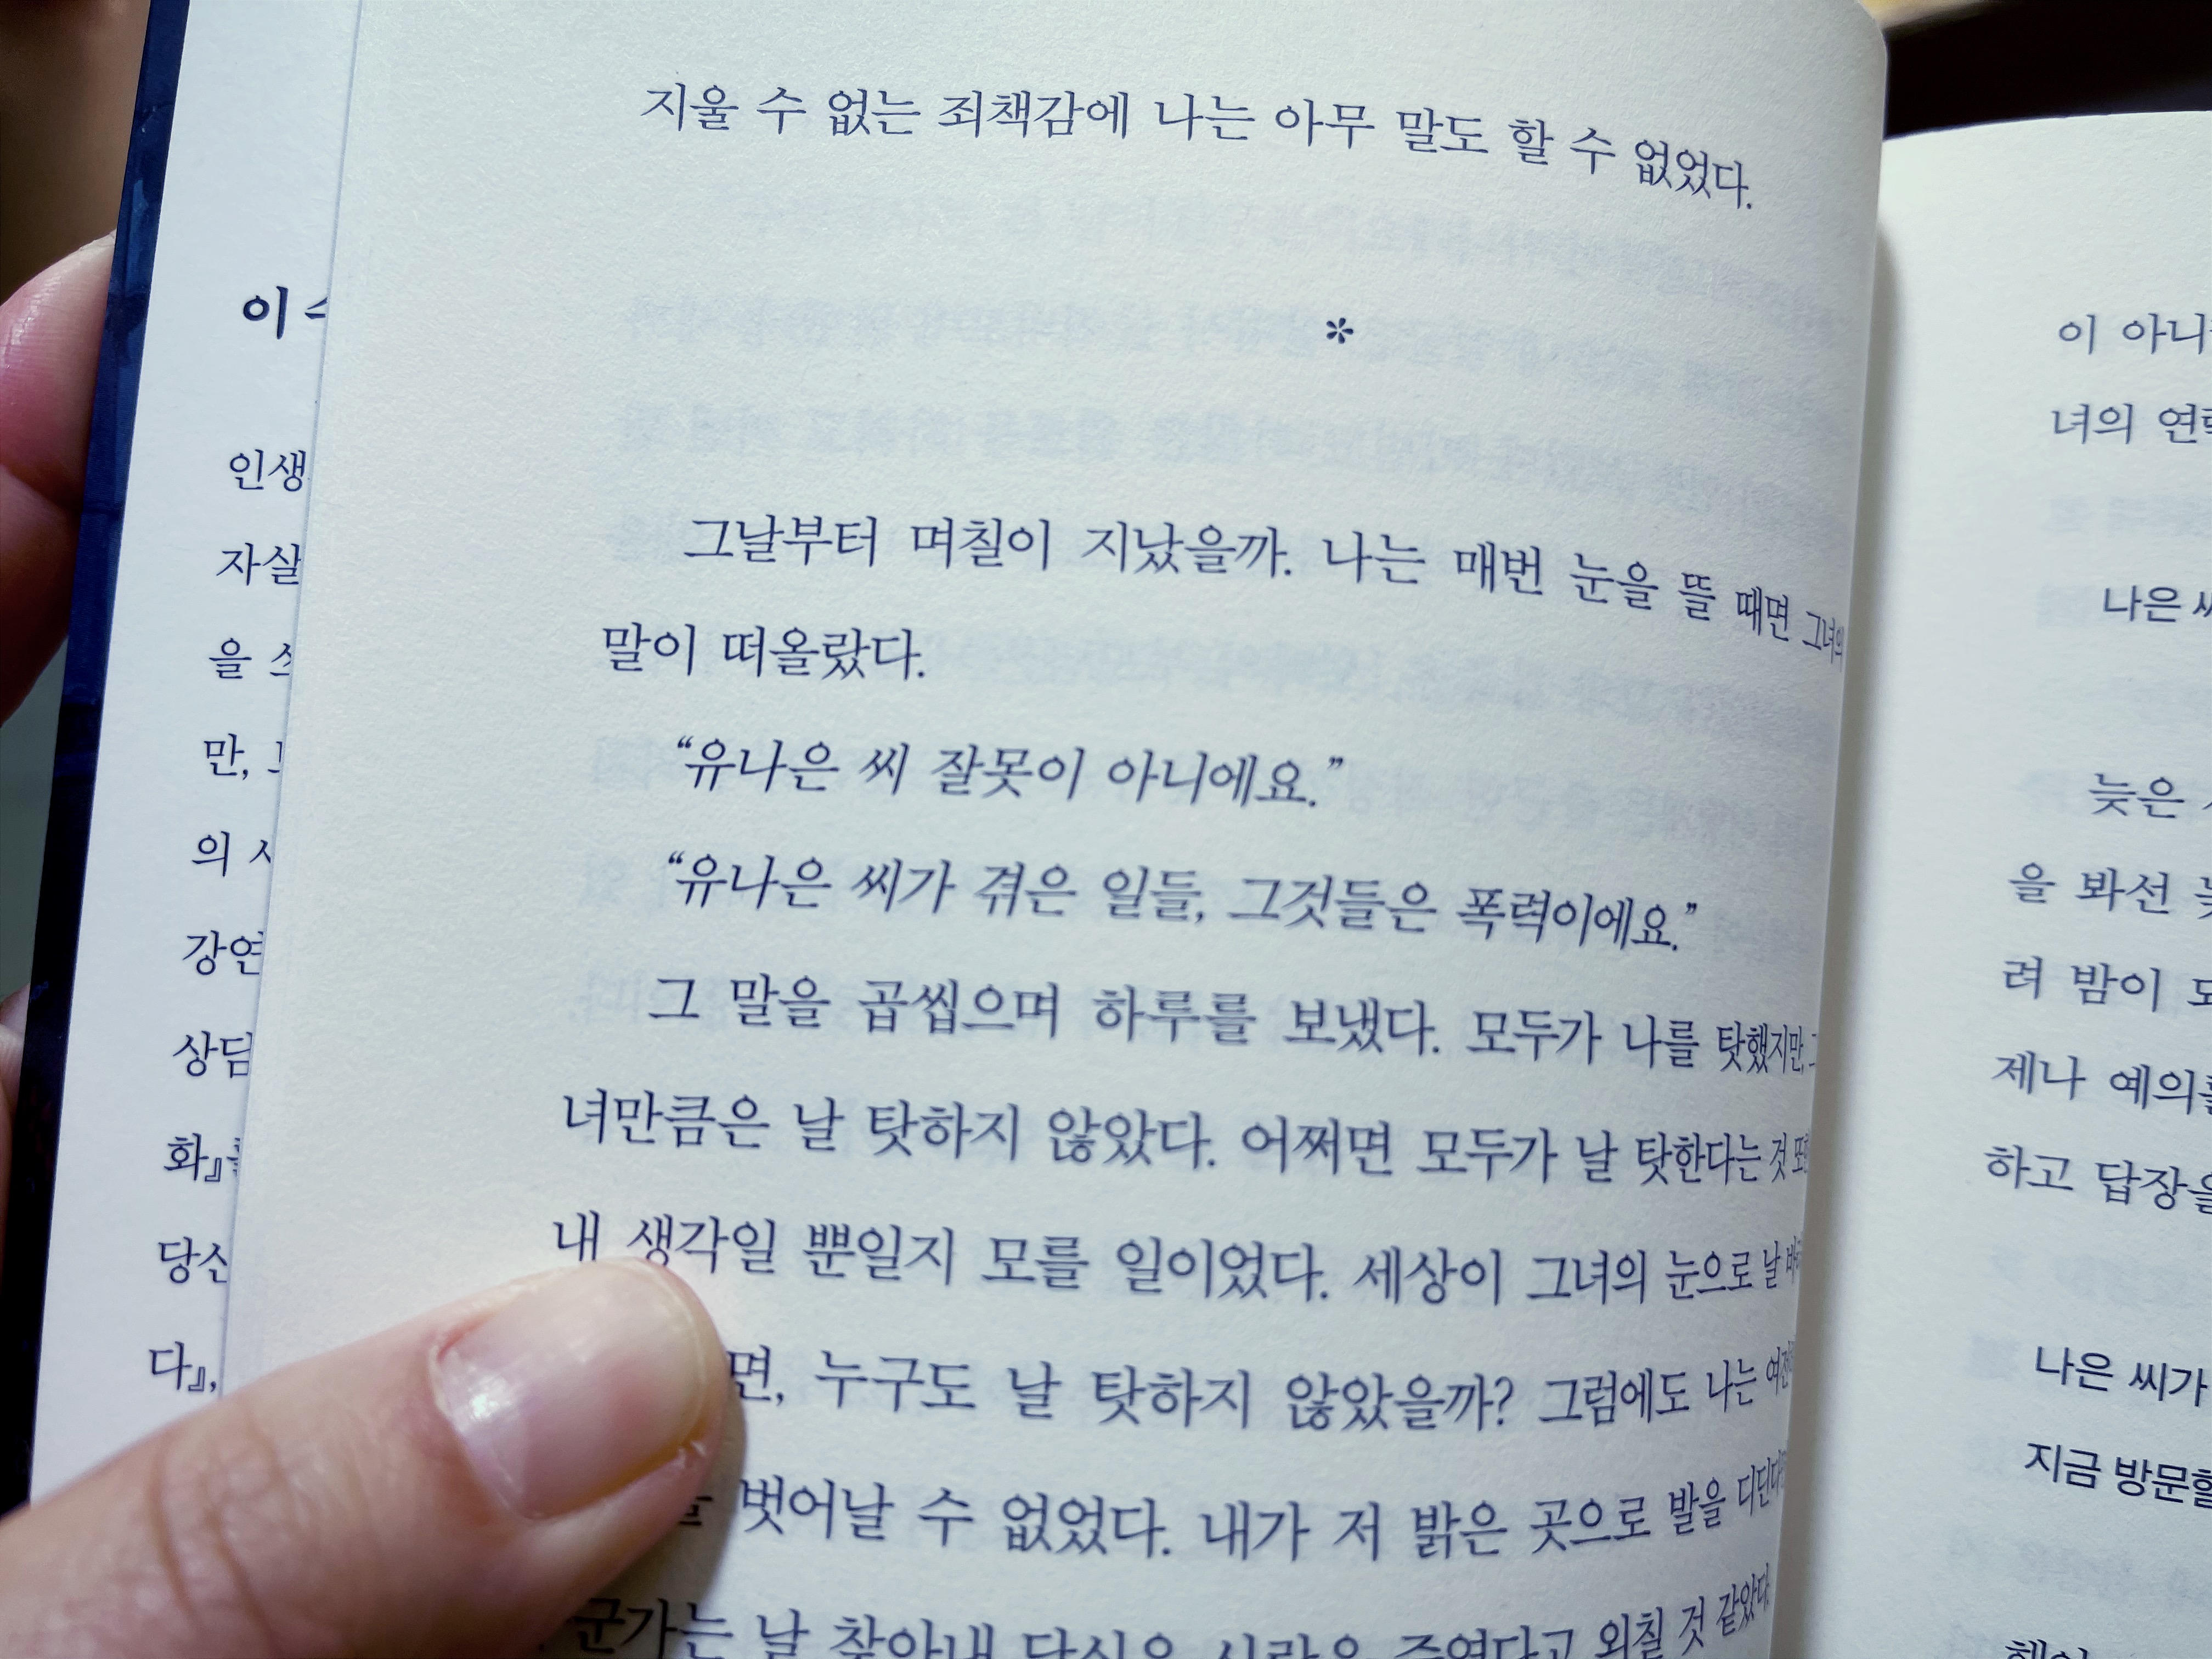 지울 수 없는 죄책감에 나는 아무 말도 할 수 없었다.
*
그날부터 며칠이 지났을까. 나는 매번 눈을 뜰 때면 그녀의
말이 떠올랐다.
“유나은 씨 잘못이 아니에요.”
“유나은 씨가 겪은 일들, 그것들은 폭력이에요.”
그 말을 곱씹으며 하루를 보냈다. 모두가 나를 탓했지만, 그
녀만큼은 날 탓하지 않았다. 어쩌면 모두가 날 탓한다는 것 또한
내 생각일 뿐일지 모를 일이었다. 세상이 그녀의 눈으로 날
면, 누구도 날 탓하지 않았을까? 그럼에도 나는
벗어날 수 없었다. 내가 저 밝은 곳으로 발을 디딘다
군가는 날 찾아내 당신은 사람을 죽였다고 외칠 것 같았다.
이
인생
자살
을
만,
의
강연
상담
화』
당신
다』,
이 아니
녀의
나은
늦은
을 봐선
려 밤이
제나 예의를
하고 답장을
나은 씨가
지금 방문할